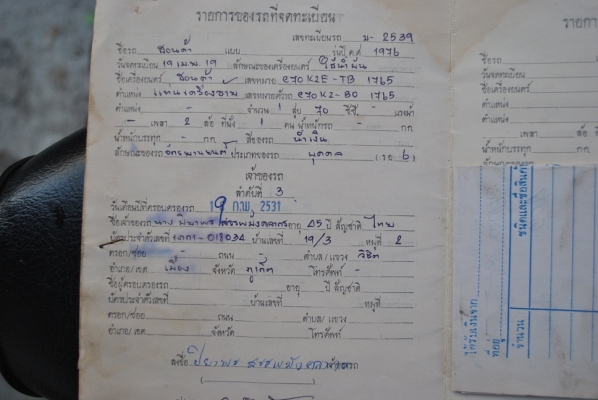 รายการของรถที่จดทะเบียน
เลขทะเบียนรถ ม- 2539
ชื่อรถ ฮอนด้า แบบ รุ่นปี ค.ศ 1976
วันจดทะเบียน 19 เม.พ. 19 ลักษณะของเครื่องยนต์ ใช้น้ำมัน
ชื่อเครื่องยนต์ ฮอนด้า เลขหมาย C70K2E-TB 1765
ตำแหน่ง แท่นเครื่องซ้าย เลขหมายตัวรถ C70K2-BO 1765
ตำแหน่ง - จำนวน 1 สูบ 70 ซีซี. แรงม้า
- เพลา 2 ล้อ ที่นั่ง 1 คน น้ำหนักรถ - กก
น้ำหนักบรรทุก - กก สีของรถ น้ำเงิน
ลักษณะของรถ จักรยานยนต์ ประเภทของรถ บุคคล (รย 6)
เจ้าของรถ
ลำดับที่ 3
วันเดือนปีที่ครอบครองรถ 19 กพ. 2531
ชื่อเจ้าของรถ นาง อายุ 45 ปี สัญชาติ ไทย
บัตรประจำตัวเลขที่ -018034 บ้านเลขที่ 19/3 หมู่ที่ 2
ตรอก/ซอย - ถนน - ตำบล/แขวง
อำเภอ/เขต เมือง จังหวัด ภูเก็ต โทรศัพท์ -
ชื่อผู้ครอบครองรถ อายุ ปี สัญชาติ
บัตรประจำตัวเลขที่ บ้านเลขที่ หมู่ที่
ตรอก/ซอย ถนน ตำบล/แขวง
อำเภอ/เขต จังหวัด โทรศัพท์
ลงชื่อ ปิยาพร เจ้าของรถ
รายการ
ชื่อรถ
วันจดทะเบียน
ชื่อเครื่องยนต์
ตำแหน่ง
ตำแหน่ง
น้ำหนักบรรทุก
ลักษณะของรถ
ได้รับเงินจาก
ที่อยู่
จำนวน
ชนิดและชื่อสินค้า